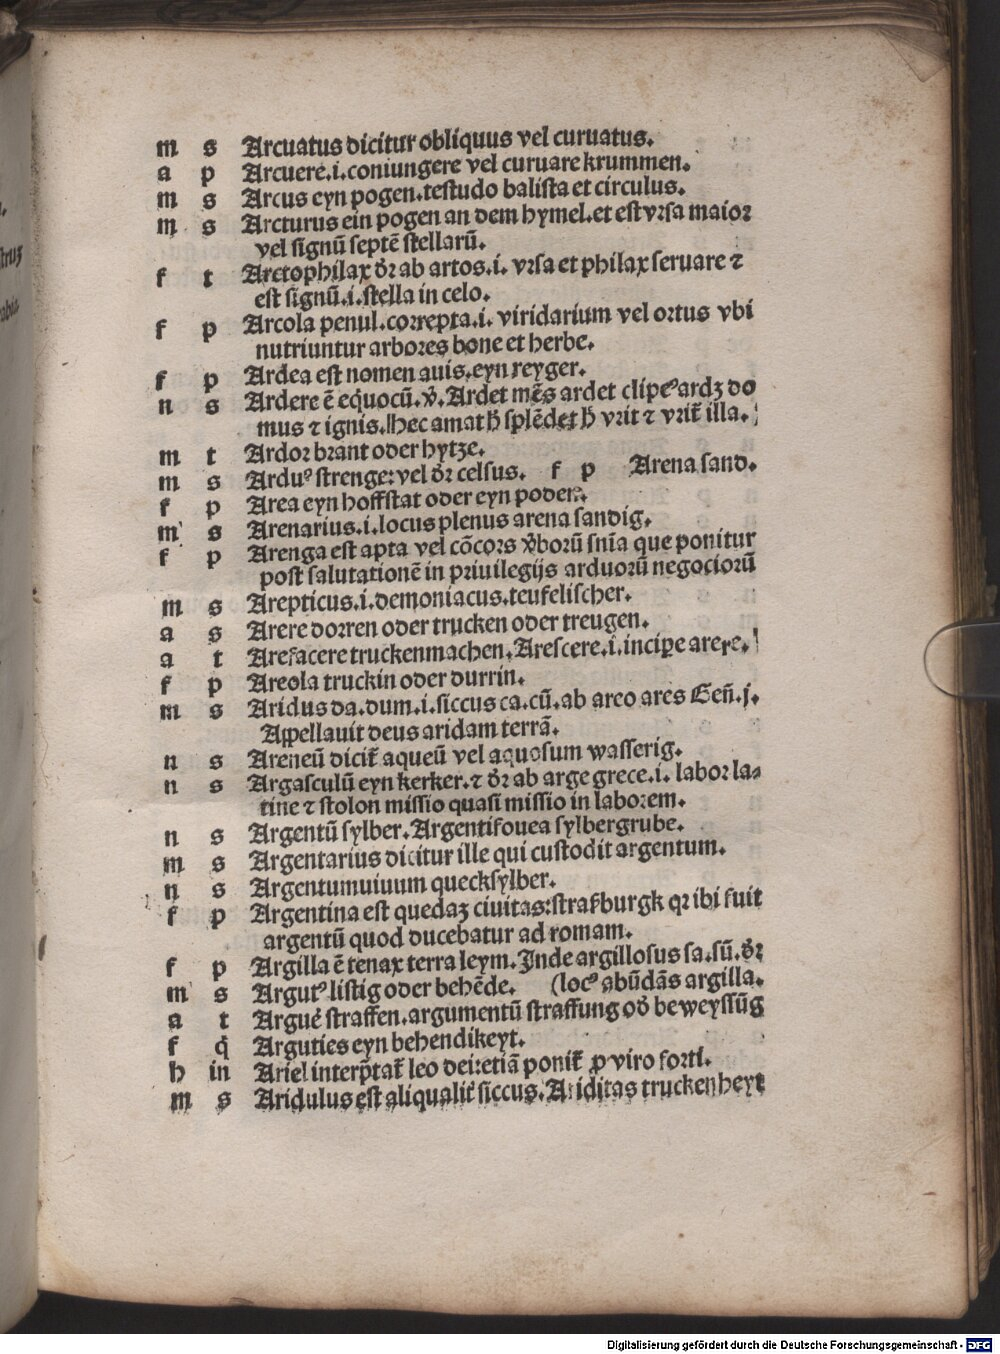 m s Arcuatus dicitur obliquus vel curuatus.
a p Arcuere.i.coniungere vel curuare krummen.
m s Arcus eyn pogen.testudo balista et circulus.
m s Arcturus ein pogen an dem hymel.et est vrsa maior
vel signū septē stellarū.
f t Arctophilax dr̄ ab artos.i. vrsa et philax seruare ⁊
est signū.i.stella in celo.
f p Arcola penul.correpta.i. viridarium vel ortus vbi
nutriuntur arbores bone et herbe.
f p Ardea est nomen auis.eyn reyger.
n s Ardere ē equocū.v̄. Ardet mēs ardet clipeꝰ ardꝫ do
mus ⁊ ignis.Hec amat hᷣ splēdet hᷣ vrit ⁊ vrit᷑ illa.
m t Ardor brant oder hytze.
m s Arduꝰ strenge:vel dr̄ celsus. f p Arena sand.
f p Area eyn hoffstat oder eyn poden.
m s Arenarius.i.locus plenus arena sandig.
f p Arenga est apta vel cōcors v̄borū snīa que ponitur
post salutationē in priuilegijs arduorū negociorū
m s Arepticus.i.demoniacus.teufelischer.
a s Arere dorren oder trucken oder treugen.
a t Arefacere truckenmachen.Arescere.i.incipe arere.
f p Areola truckin oder durrin.
m s Aridus da.dum.i.siccus ca.cū.ab areo ares Geñ.j.
Appellauit deus aridam terrā.
n s Areneū dicit᷑ aqueū vel aquosum wasserig.
n s Argasculū eyn kerker.⁊ dr̄ ab arge grece.i. labor la-
tine ⁊ stolon missio quasi missio in laborem.
n s Argentū sylber.Argentifouea sylbergrube.
m s Argentarius dicitur ille qui custodit argentum.
n s Argentumuiuum quecksylber.
f p Argentina est quedaꝫ ciuitas:strasburgk qr ibi fuit
argentū quod ducebatur ad romam.
f p Argilla ē tenax terra leym.Inde argillosus sa.sū.dr̄
m s Argutꝰ listig oder behēde. (locꝰ abūdās argilla.
a t Arguē straffen.argumentū straffung od̄ beweyssūg
f q̄ Arguties eyn behendikeyt.
h in Ariel interp̄tat᷑ leo dei:etiā ponit᷑ ꝓ viro forti.
m s Aridulus est aliqualit᷑ siccus.Ariditas truckenheyt
Digitalisierung gefördert durch die Deutsche Forschungsgemeinschaft - DFG